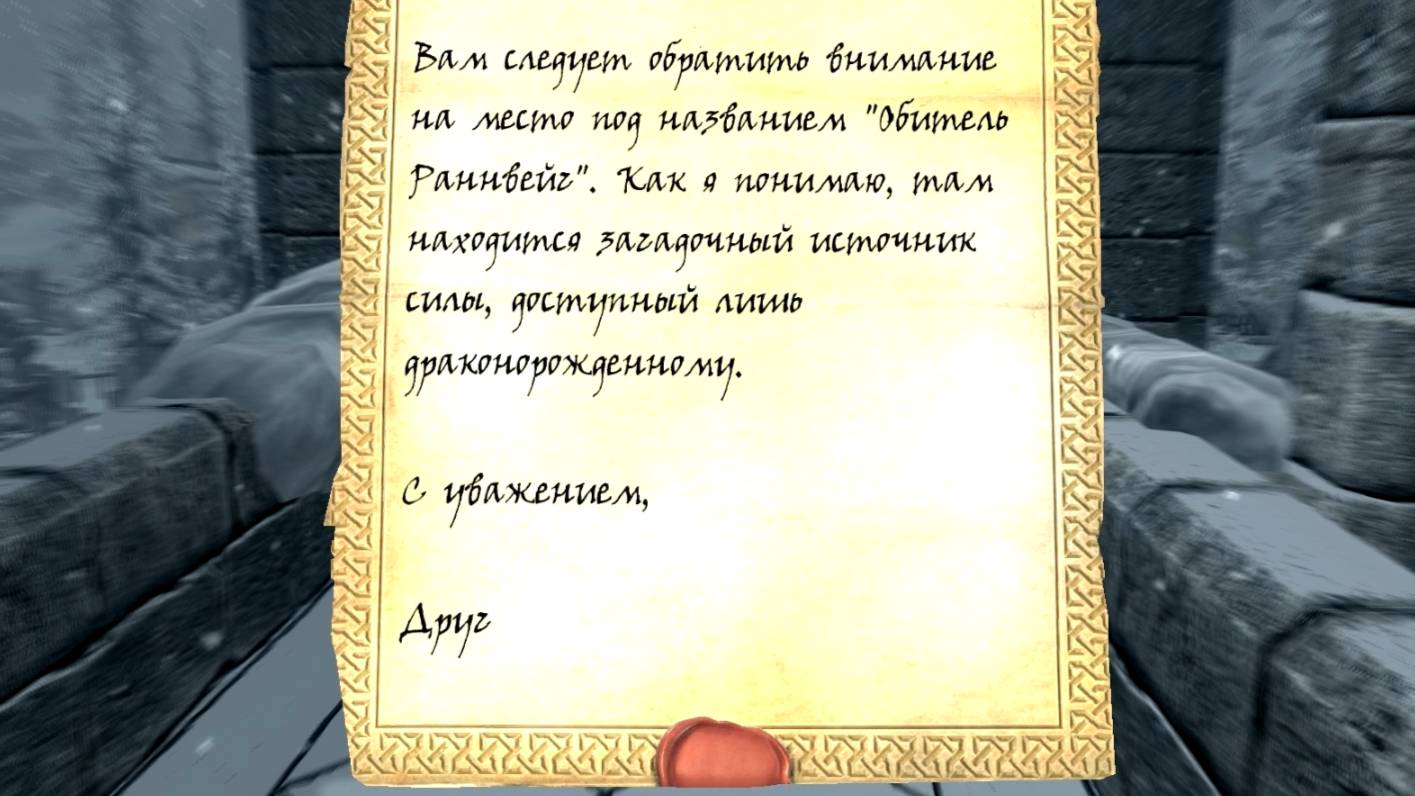 Вам следует обратить внимание
на место под названием "Обитель
Раннвейг". Как я понимаю, там
находится загадочный источник
силы, доступный лишь
драконорожденному.
С уважением,
Друг